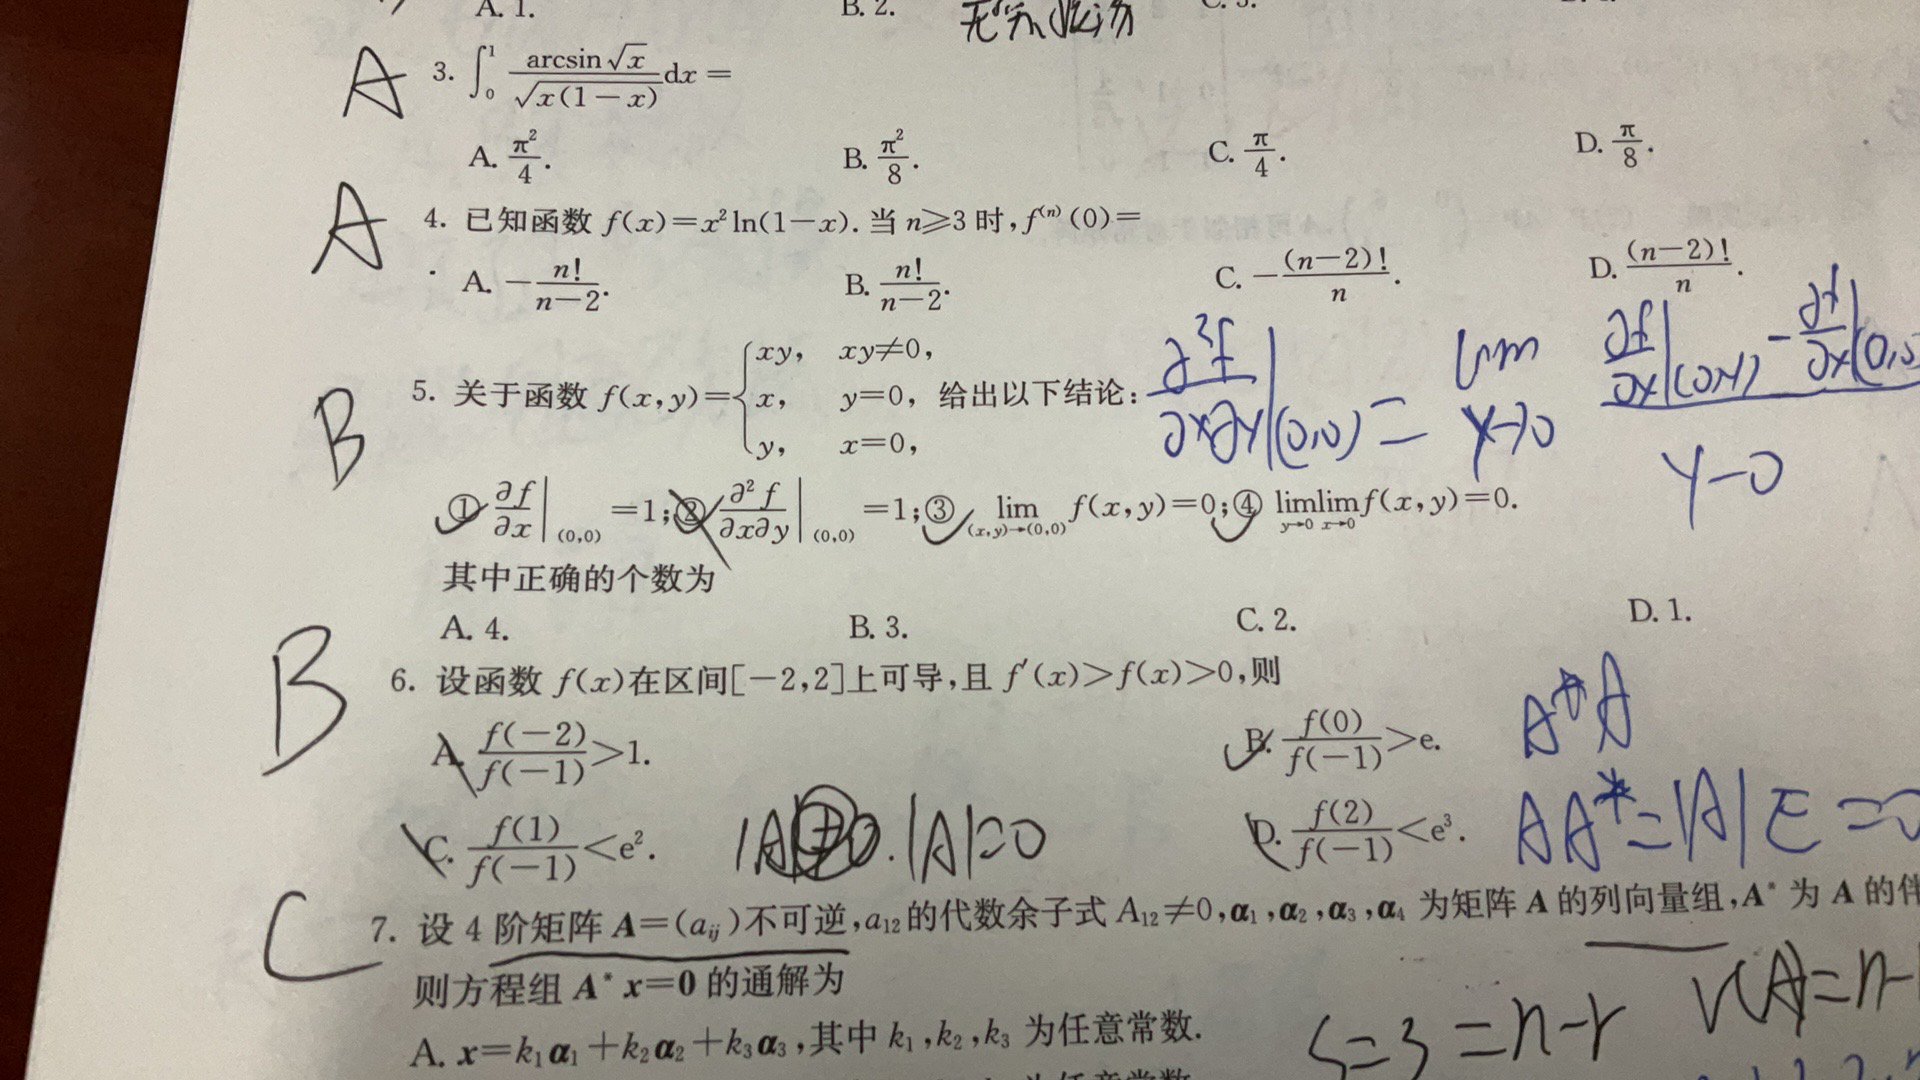 A. 1.
B. 2.
A 3. ∫₀¹ arcsin√x / √(x(1−x)) dx =
A. π²/4.
B. π²/8.
C. π/4.
D. π/8.
A 4. 已知函数 f(x)=x²ln(1−x). 当 n≥3 时, f⁽ⁿ⁾(0)=
A. −n!/(n−2).
B. n!/(n−2).
C. −(n−2)!/n.
D. (n−2)!/n.
xy, xy≠0,
B 5. 关于函数 f(x,y)={ x, y=0, 给出以下结论:
y, x=0,
∂²f/∂x∂y|(0,0) = lim y→0
∂f/∂x|(0,y) − ∂f/∂x|(0,0)
y−0
① ∂f/∂x|(0,0) =1; ② ∂²f/∂x∂y|(0,0) =1; ③ lim (x,y)→(0,0) f(x,y)=0; ④ lim y→0 lim x→0 f(x,y)=0.
其中正确的个数为
A. 4.
B. 3.
C. 2.
D. 1.
B 6. 设函数 f(x)在区间[−2,2]上可导,且 f′(x)>f(x)>0,则
A. f(−2)/f(−1)>1.
B. f(0)/f(−1)>e.
A*A
C. f(1)/f(−1)<e².
|A|=0
D. f(2)/f(−1)<e³.
AA*=|A|E=0
C 7. 设 4 阶矩阵 A=(aᵢⱼ)不可逆,a₁₂的代数余子式 A₁₂≠0,α₁,α₂,α₃,α₄ 为矩阵 A 的列向量组,A* 为 A 的伴
则方程组 A*x=0 的通解为
r(A)=n−1
S=3=n−r
A. x=k₁α₁+k₂α₂+k₃α₃,其中 k₁,k₂,k₃ 为任意常数.
为任意常数